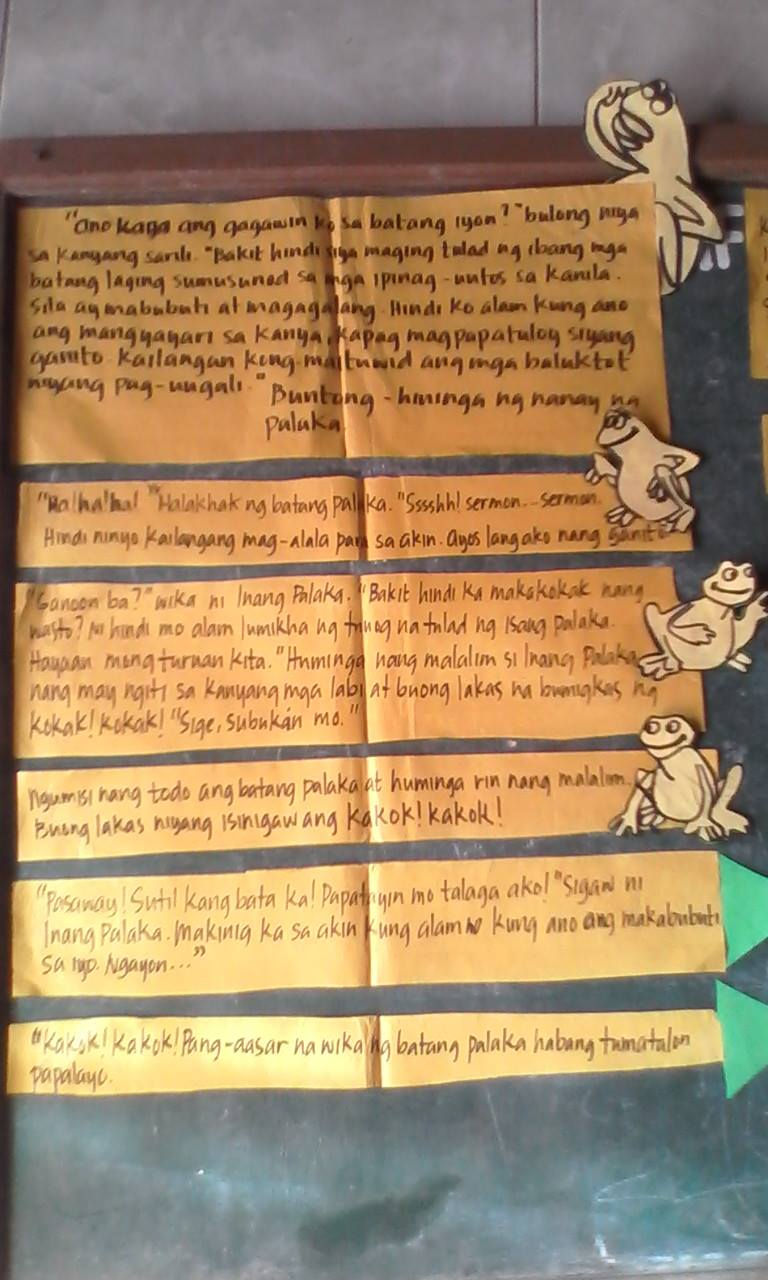 "Ano kaya ang gagawin ko sa batang iyon?" bulong niya
sa kanyang sarili. "Bakit hindi siya maging tulad ng ibang mga
batang laging sumusunod sa mga ipinag-uutos sa kanila.
Sila ay mabubuti at magagalang. Hindi ko alam kung ano
ang mangyayari sa kanya, kapag magpapatuloy siyang
ganito kailangan kong maituwid ang mga baluktot
niyang pag-uugali." Buntong-hininga ng nanay ng
palaka.
"Ha!ha!ha! "Halakhak ng batang palaka. "Sssshh! sermon...sermon.
Hindi ninyo kailangang mag-alala para sa akin. Ayos lang ako nang ganito
"Ganoon ba?" wika ni Inang Palaka. "Bakit hindi ka makakokak nang
wasto? Ni hindi mo alam lumikha ng tunog na tulad ng isang palaka.
Hayaan mong turuan kita." Huminga nang malalim si Inang Palaka
nang may ngiti sa kanyang mga labi at buong lakas na bumigkas ng
kokak! kokak! "Sige, subukan mo."
Ngumisi nang todo ang batang palaka at huminga rin nang malalim.
Buong lakas niyang isinigaw ang kakok! kakok!
"Pasaway! Sutil kang bata ka! Papatayin mo talaga ako! "Sigaw ni
Inang Palaka. Makinig ka sa akin kung alam mo kung ano ang makabubuti
sa iyo. Ngayon..."
"Kakok! Kakok! Pang-aasar na wika ng batang palaka habang tumatalon
papalayo.